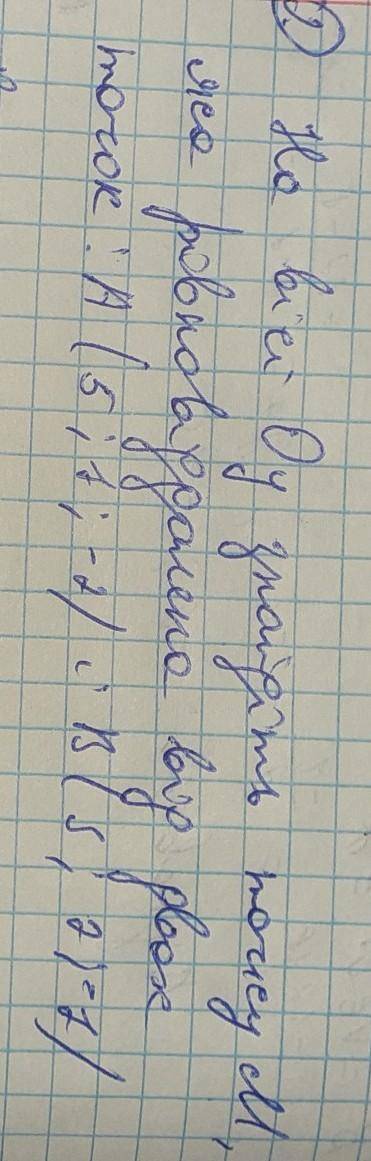 2) На вісі Oy знайдіть точку M,
яка рівновіддалена від двох
точок: A (5; 1; -2) і B (5; 2; -1)